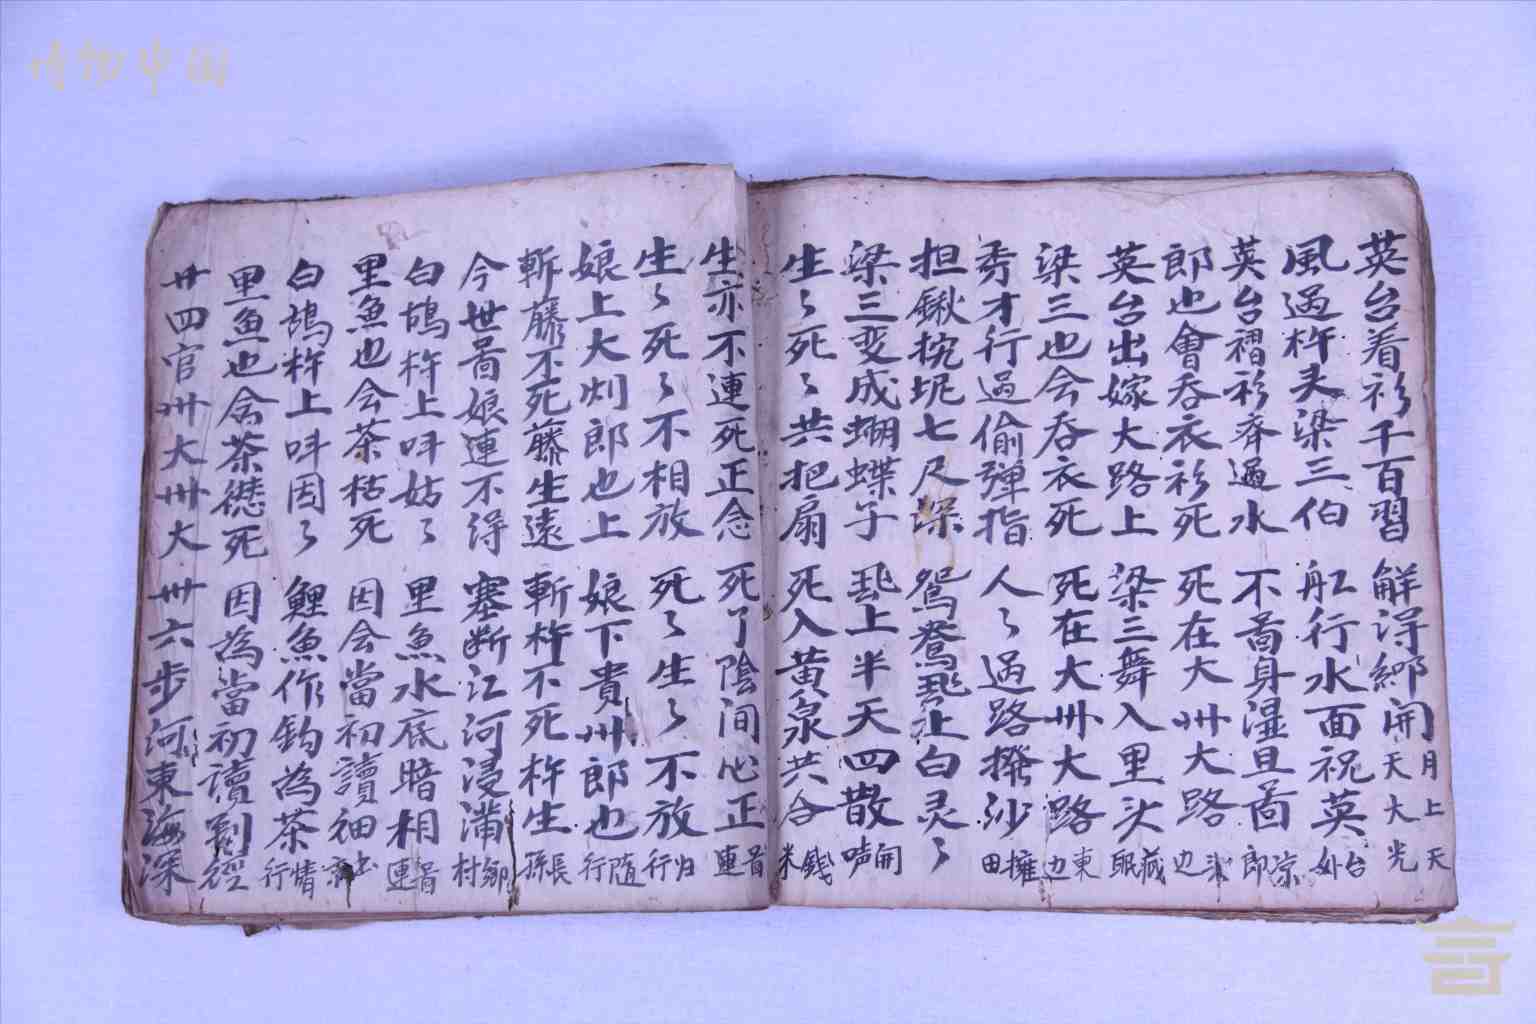 博物中国
英台着衫千百習 解淂鄉開天大光 月上天
風過杵夫梁三伯 舡行水面祝英台
英台褶衫齊過水 不啚身湿旦啚郎
郎也會吞衣衫死 死在大卅大路边
英台出嫁大路上 梁三舞入里头眠
梁三也会吞衣死 死在大卅大路边
秀才行過偷彈指 人〻過路撥沙田
担鍬挽坭七尺深 鴛鴦飛上白灵〻
梁三变成蝴蝶子 飛上半天四散開
生〻死〻共把扇 死入黄泉共合
生亦不連死正念 死了陰間心正連
生〻死〻不相放 死〻生〻不放行
娘上大刘郎也上 娘下貴州郎也行
斬藤不死藤生遠 斬杵不死杵生孫
今世啚娘連不淂 塞断江河浸满村
白鴣杵上呌姑〻 里魚水底暗相連
里魚也会茶枯死 因会當初讀
白鴣杵上呌因〻 鯉魚作鈎為茶行
里魚也含茶德死 因為當初讀到經
廿四官卅大卅大 卅六步河東海深